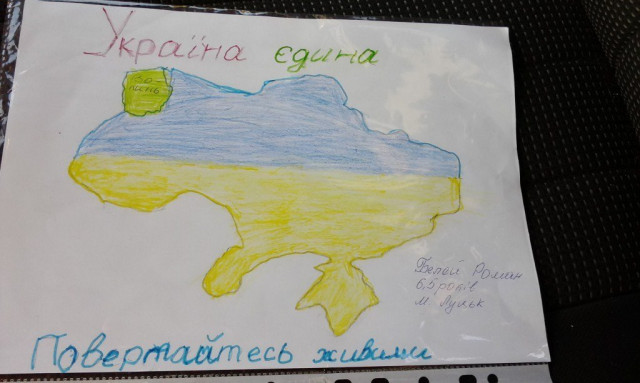 Україна єдина
Во
линь
Роман
6,5 років
м. Луцьк
Повертайтесь живими